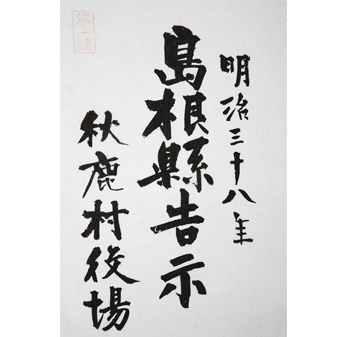 明治三十八年
島根縣告示
秋鹿村役場